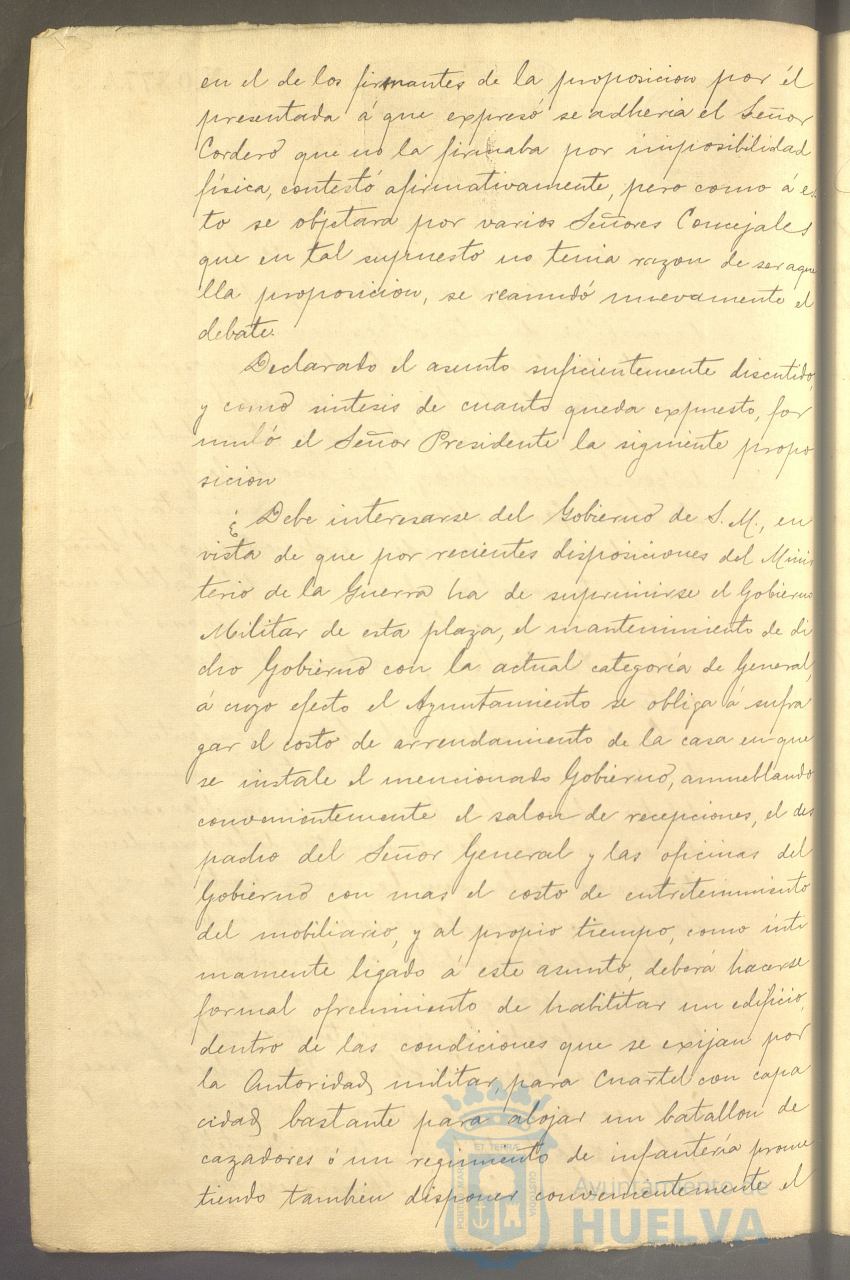 en el de los firmantes de la proposicion por él
presentada á que expresó se adheria el Señor
Cordero que no la firmaba por imposibilidad
física, contestó afirmativamente, pero como á es
to se objetara por varios Señores Concejales
que en tal supuesto no tenia razon de ser aque
lla proposicion, se reanudó nuevamente el
debate.
Declarado el asunto suficientemente discutido,
y como sintesis de cuanto queda expuesto, for
muló el Señor Presidente la siguiente propo
sicion
¿Debe interesarse del Gobierno de S. M., en
vista de que por recientes disposiciones del Minis
terio de la Guerra ha de suprimirse el Gobierno
Militar de esta plaza, el mantenimiento de di
cho Gobierno con la actual categoría de General,
á cuyo efecto el Ayuntamiento se obliga á sufra
gar el costo de arrendamiento de la casa en que
se instale el mencionado Gobierno, amueblando
convenientemente el salon de recepciones, el des
pacho del Señor General y las oficinas del
Gobierno con mas el costo de entretenimiento
del mobiliario, y al propio tiempo, como ínti
mamente ligado á este asunto, deberá hacerse
formal ofrecimiento de habilitar un edificio,
dentro de las condiciones que se exijan por
la Autoridad militar, para Cuartel con capa
cidad bastante para alojar un batallon de
cazadores ó un regimiento de infantería prome
tiendo tambien disponer convenientemente el
ET TERRÆ
PORTUS MARIS
CUSTODIA
Ayuntamiento de
HUELVA